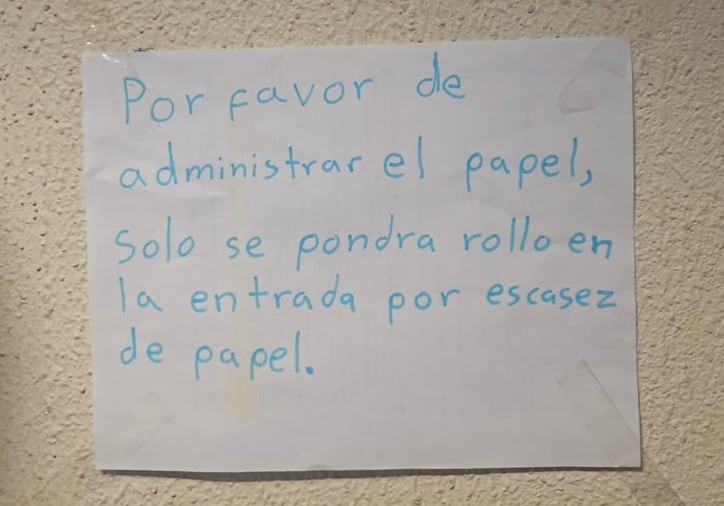 Por favor de
administrar el papel,
solo se pondra rollo en
la entrada por escasez
de papel.